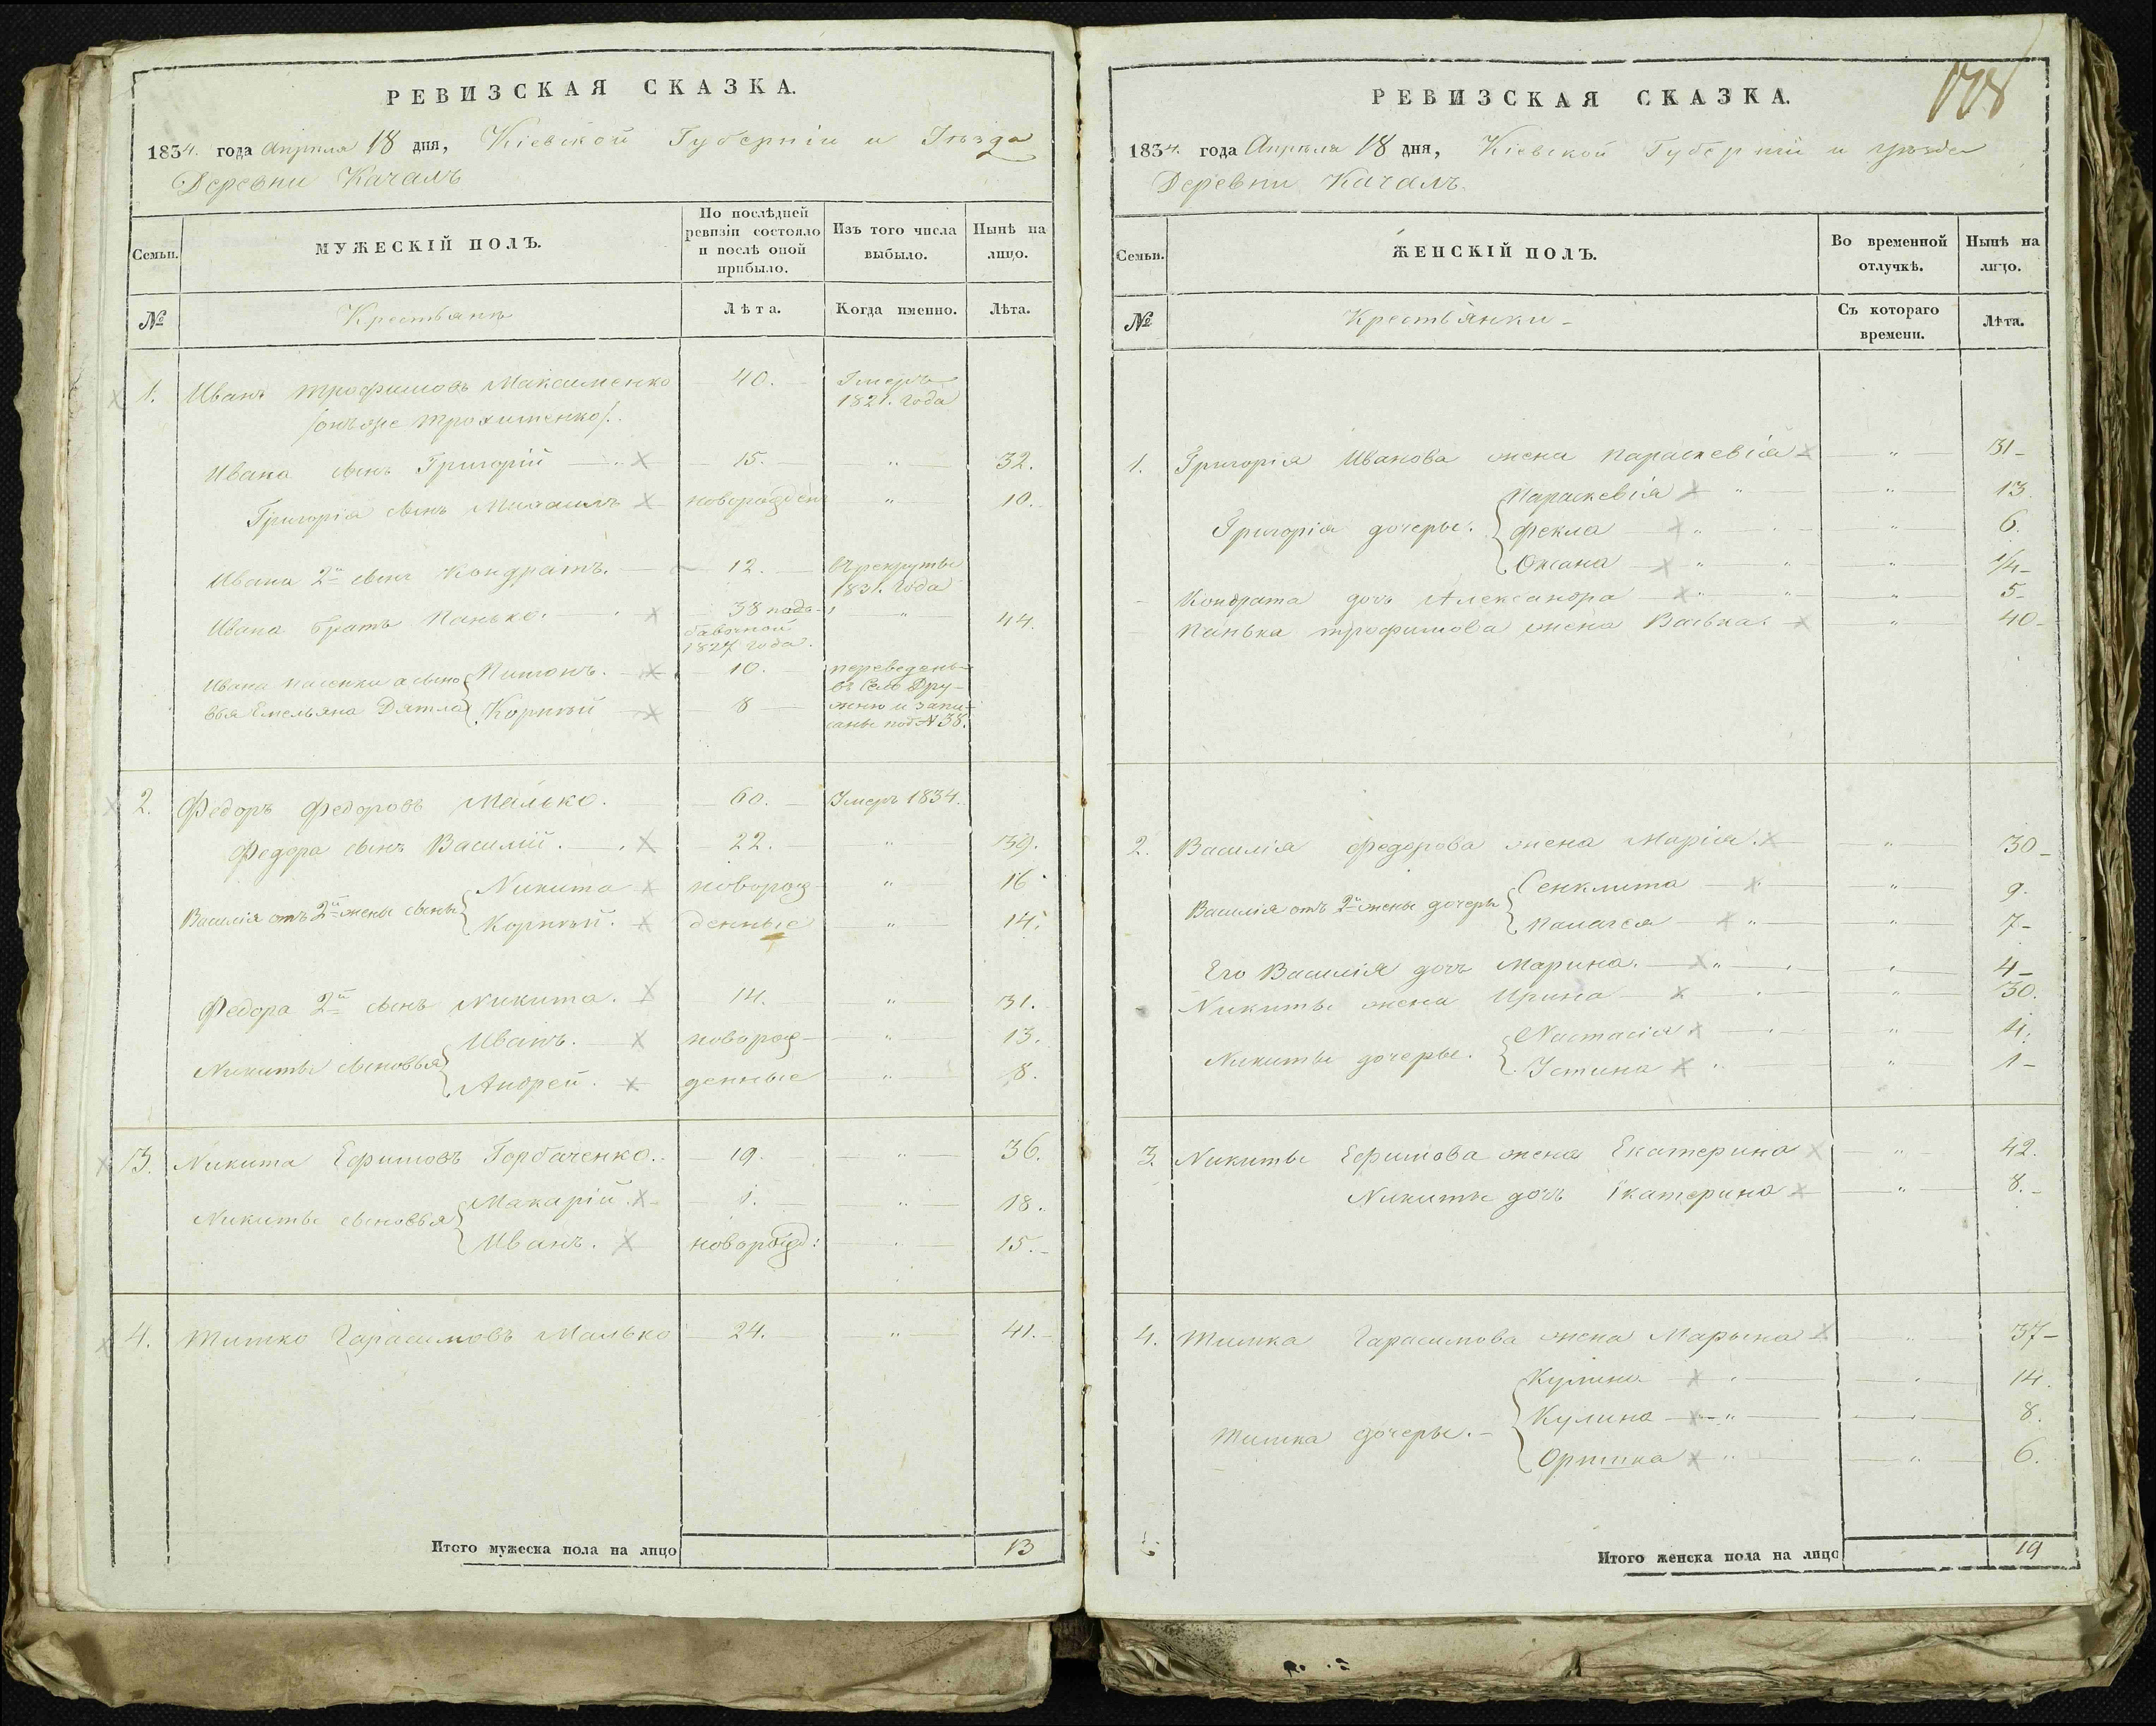 РЕВИЗСКАЯ СКАЗКА.
1834. года Апреля 18 дня, Кіевской Губерніи и Уѣзда
Деревни Качалъ
Семьи.
МУЖЕСКІЙ ПОЛЪ.
По послѣдней ревизіи состояло и послѣ оной прибыло.
Изъ того числа выбыло.
Нынѣ на лицо.
№
Крестьянъ
Лѣта.
Когда именно.
Лѣта.
1. Иванъ Трофимовъ Максименко 40. Умеръ 1821. года
/онъ же Трохименко/.
Ивана сынъ Григорій 15. " 32.
Григорія сынъ Михаилъ новорожден " 10.
Ивана 2й сынъ Кондратъ. 12. Въ рекруты 1831. года
Ивана братъ Панько. 38 по добавочной 1827 года. " 44.
Ивана пасенки а сыно Пимонъ. 10. переведены
въ село Дру-
вья Емельяна Дятла Корнѣй 8 жню и запи-
саны под N 38.
2. Федоръ Федоровъ Малько. 60. Умеръ 1834.
Федора сынъ Василій. 22. " 39.
Василія отъ 2й жены сыны Никита новорож " 16
Корнѣй. денные " 14.
Федора 2й сынъ Никита. 14. " 31.
Никиты сыновья Иванъ. новорож- " 13.
Андрей. денные " 8.
3. Никита Ефимовъ Горбаченко. 19. " 36.
Никиты сыновья Макарій. 1. " 18.
Иванъ. новорожд: " 15.
4. Тимко Гарасимовъ Малько 24. " 41.
Итого мужеска пола на лицо 13
178
РЕВИЗСКАЯ СКАЗКА.
1834. года Апрѣля 18 дня, Кіевской Губерніи и уѣзда
Деревни Качалъ.
Семьи.
ЖЕНСКІЙ ПОЛЪ.
Во временной отлучкѣ.
Нынѣ на лицо.
№
Крестьянки
Съ котораго времени.
Лѣта.
1. Григорія Иванова жена Параскевія " 31
Григорія дочеры. Параскевія " 13.
Фекла " 6.
Оксана " 1/4
Кондрата дочь Александра " 5
Панька Трофимова жена Васька. " 40
2. Василія Федорова жена Марія. " 30
Василія отъ 2й жены дочеры Сенклита " 9.
Палагея " 7
Его Василія дочь Марина. " 4
Никиты жена Ирина " 30.
Никиты дочеры. Настасія " 4.
Устина " 1
3. Никиты Ефимова жена Екатерина " 42.
Никиты дочь Екатерина " 8.
4. Тимка Гарасимова жена Марына " 37
Кулина " 14.
Тимка дочеры. Кулина " 8.
Оришка " 6.
Итого женска пола на лицо 19